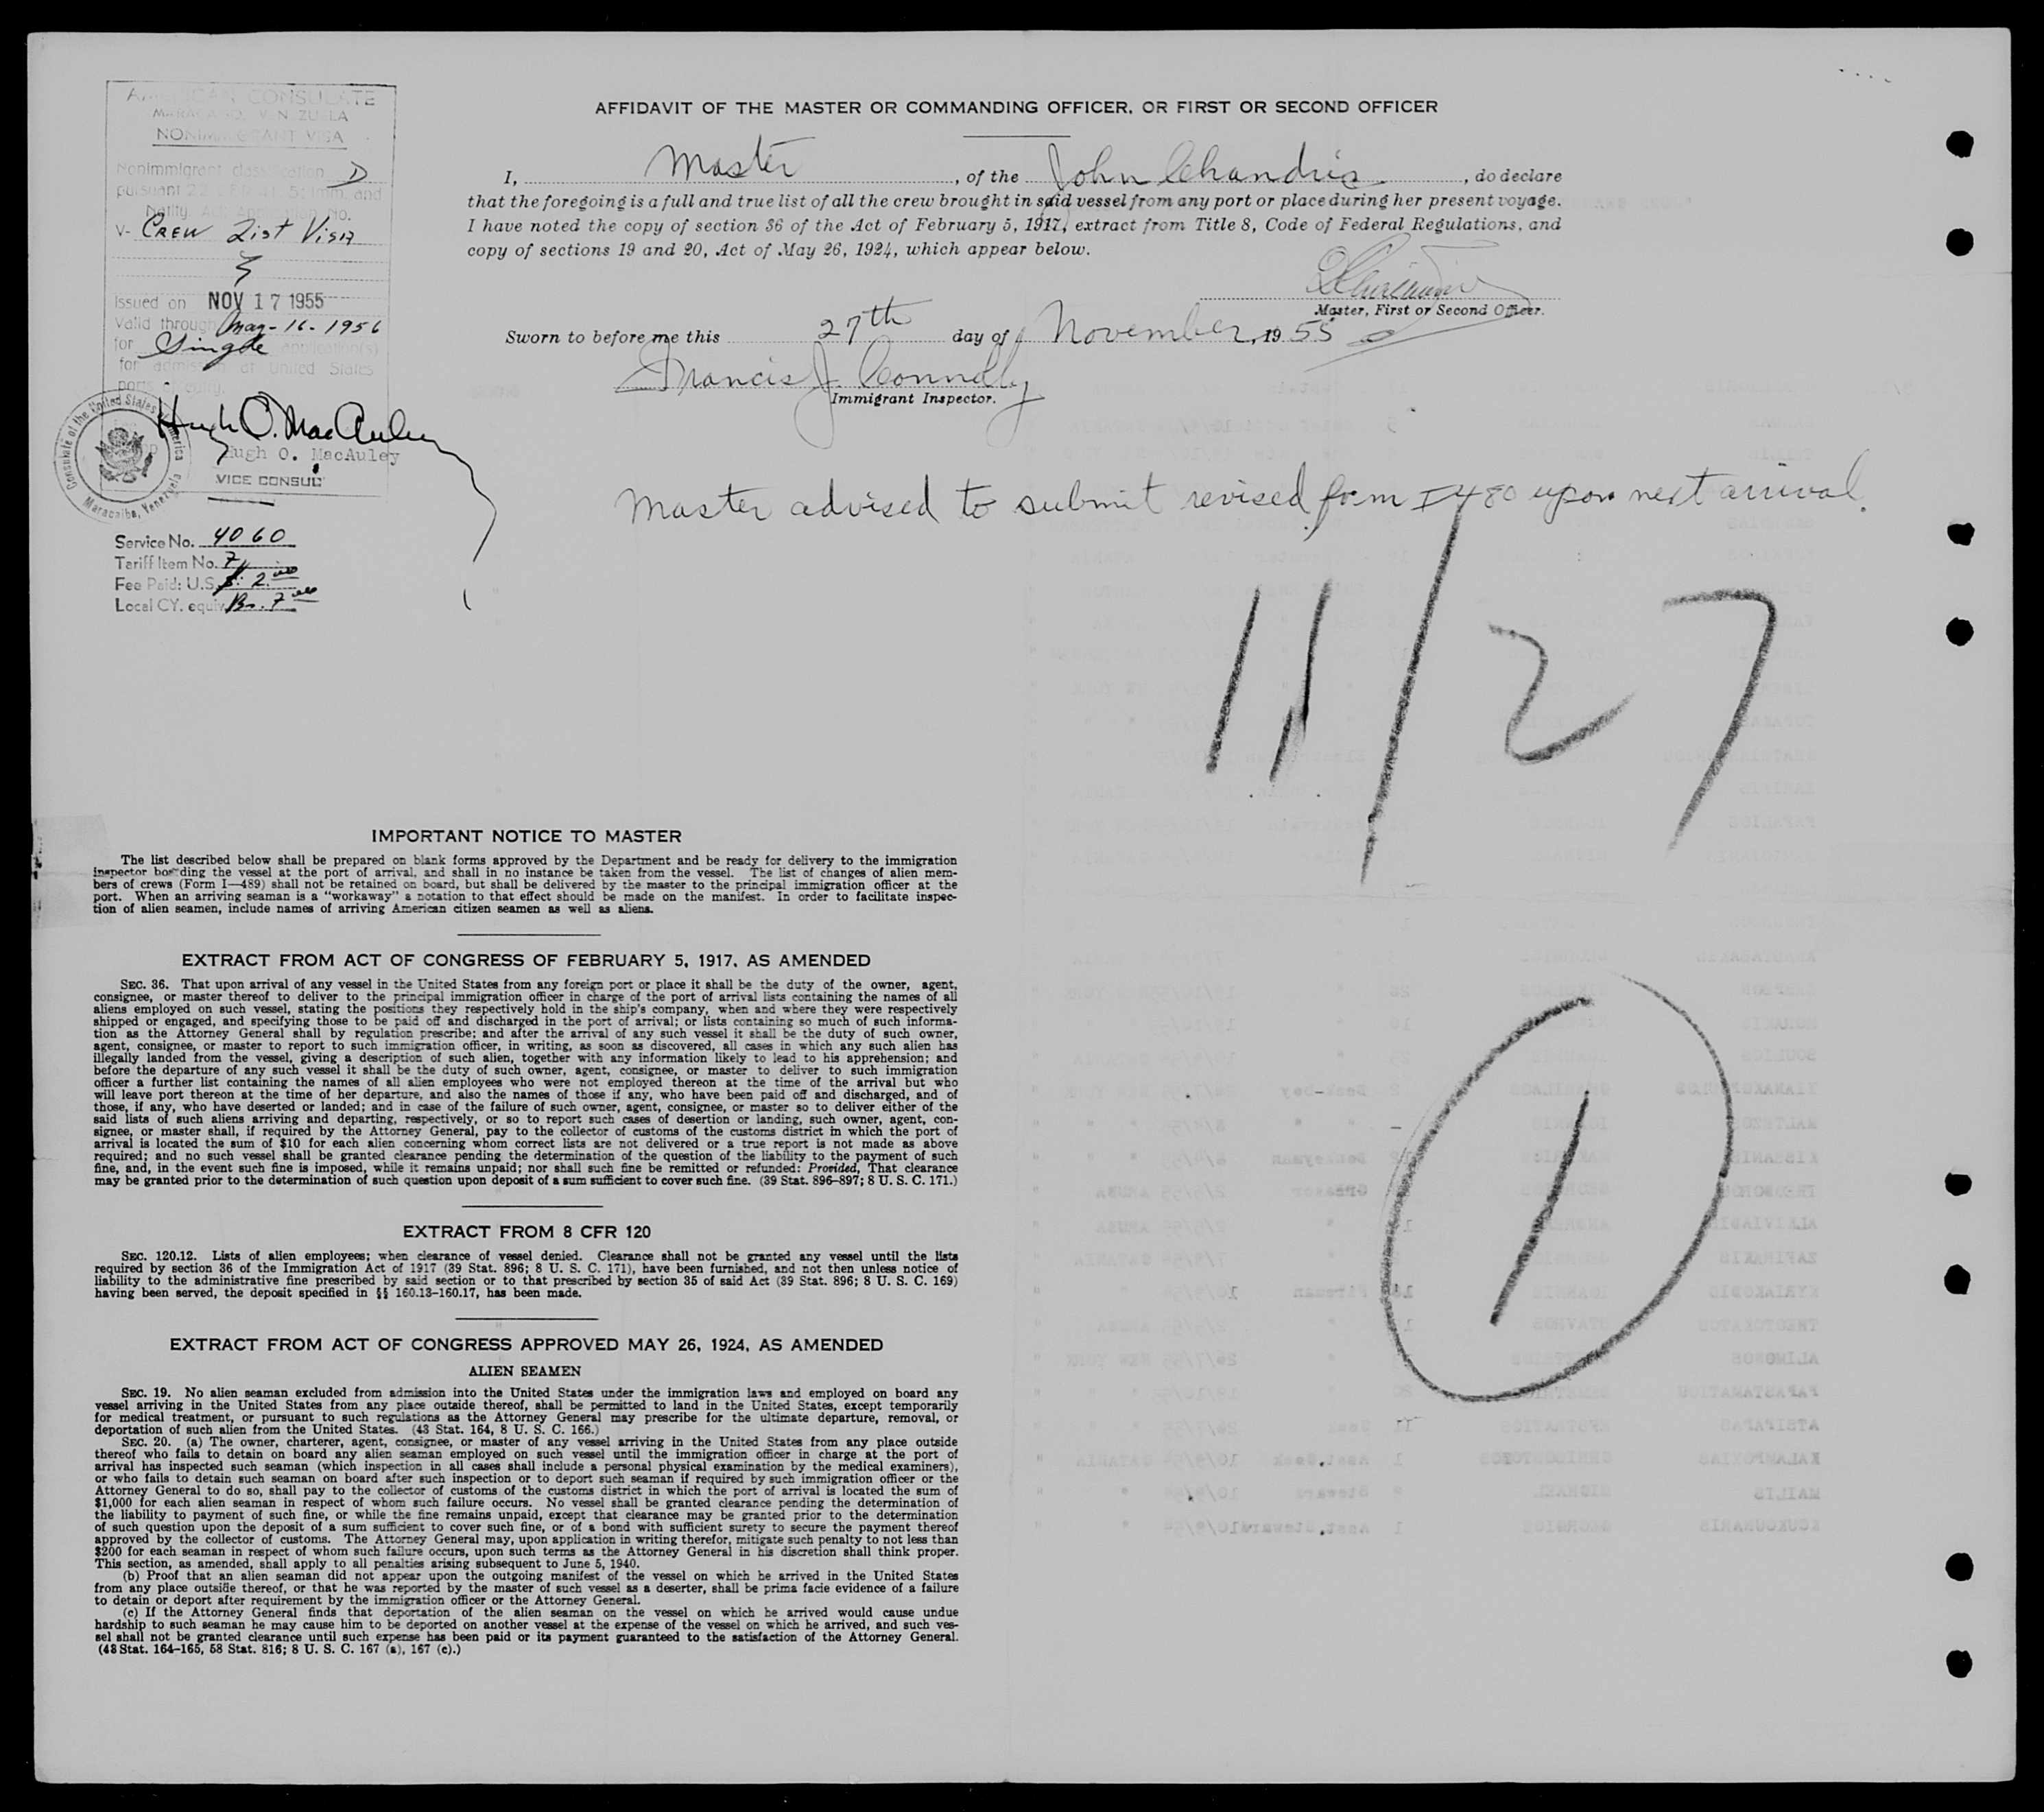 AMERICAN CONSULATE
MARACAIBO, VENEZUELA
NONIMMIGRANT VISA
Nonimmigrant classification D
pursuant 22
V- CREW List VISA
Issued on NOV 17 1955
Valid through May-16-1956
for Single application(s)
for admission at United States
ports of entry.
Hugh O. MacAuley
Hugh O. MacAuley
VICE CONSUL
Consulate of the United States America
Maracaibo, Venezuela
Service No. 4060
Tariff Item No. 7
Fee Paid: U.S. $: 2.00
Local CY. equiv. Bs. 7.00
AFFIDAVIT OF THE MASTER OR COMMANDING OFFICER, OR FIRST OR SECOND OFFICER
I, Master, of the John Chandris, do declare
that the foregoing is a full and true list of all the crew brought in said vessel from any port or place during her present voyage.
I have noted the copy of section 36 of the Act of February 5, 1917, extract from Title 8, Code of Federal Regulations, and
copy of sections 19 and 20, Act of May 26, 1924, which appear below.
Master, First or Second Officer.
Sworn to before me this 27th day of November, 1955
Francis J. Connolly
Immigrant Inspector.
Master advised to submit revised form I480 upon next arrival.
11/27
1
IMPORTANT NOTICE TO MASTER
The list described below shall be prepared on blank forms approved by the Department and be ready for delivery to the immigration
inspector boarding the vessel at the port of arrival, and shall in no instance be taken from the vessel. The list of changes of alien mem-
bers of crews (Form I—489) shall not be retained on board, but shall be delivered by the master to the principal immigration officer at the
port. When an arriving seaman is a “workaway” a notation to that effect should be made on the manifest. In order to facilitate inspec-
tion of alien seamen, include names of arriving American citizen seamen as well as aliens.
EXTRACT FROM ACT OF CONGRESS OF FEBRUARY 5, 1917, AS AMENDED
SEC. 36. That upon arrival of any vessel in the United States from any foreign port or place it shall be the duty of the owner, agent,
consignee, or master thereof to deliver to the principal immigration officer in charge of the port of arrival lists containing the names of all
aliens employed on such vessel, stating the positions they respectively hold in the ship's company, when and where they were respectively
shipped or engaged, and specifying those to be paid off and discharged in the port of arrival; or lists containing so much of such informa-
tion as the Attorney General shall by regulation prescribe; and after the arrival of any such vessel it shall be the duty of such owner,
agent, consignee, or master to report to such immigration officer, in writing, as soon as discovered, all cases in which any such alien has
illegally landed from the vessel, giving a description of such alien, together with any information likely to lead to his apprehension; and
before the departure of any such vessel it shall be the duty of such owner, agent, consignee, or master to deliver to such immigration
officer a further list containing the names of all alien employees who were not employed thereon at the time of the arrival but who
will leave port thereon at the time of her departure, and also the names of those if any, who have been paid off and discharged, and of
those, if any, who have deserted or landed; and in case of the failure of such owner, agent, consignee, or master so to deliver either of the
said lists of such aliens arriving and departing, respectively, or so to report such cases of desertion or landing, such owner, agent, con-
signee, or master shall, if required by the Attorney General, pay to the collector of customs of the customs district in which the port of
arrival is located the sum of $10 for each alien concerning whom correct lists are not delivered or a true report is not made as above
required; and no such vessel shall be granted clearance pending the determination of the question of the liability to the payment of such
fine, and, in the event such fine is imposed, while it remains unpaid; nor shall such fine be remitted or refunded: Provided, That clearance
may be granted prior to the determination of such question upon deposit of a sum sufficient to cover such fine. (39 Stat. 896–897; 8 U. S. C. 171.)
EXTRACT FROM 8 CFR 120
SEC. 120.12. Lists of alien employees; when clearance of vessel denied. Clearance shall not be granted any vessel until the lists
required by section 36 of the Immigration Act of 1917 (39 Stat. 896; 8 U. S. C. 171), have been furnished, and not then unless notice of
liability to the administrative fine prescribed by said section or to that prescribed by section 35 of said Act (39 Stat. 896; 8 U. S. C. 169)
having been served, the deposit specified in §§ 160.13–160.17, has been made.
EXTRACT FROM ACT OF CONGRESS APPROVED MAY 26, 1924, AS AMENDED
ALIEN SEAMEN
SEC. 19. No alien seaman excluded from admission into the United States under the immigration laws and employed on board any
vessel arriving in the United States from any place outside thereof, shall be permitted to land in the United States, except temporarily
for medical treatment, or pursuant to such regulations as the Attorney General may prescribe for the ultimate departure, removal, or
deportation of such alien from the United States. (43 Stat. 164, 8 U. S. C. 166.)
SEC. 20. (a) The owner, charterer, agent, consignee, or master of any vessel arriving in the United States from any place outside
thereof who fails to detain on board any alien seaman employed on such vessel until the immigration officer in charge at the port of
arrival has inspected such seaman (which inspection in all cases shall include a personal physical examination by the medical examiners),
or who fails to detain such seaman on board after such inspection or to deport such seaman if required by such immigration officer or the
Attorney General to do so, shall pay to the collector of customs of the customs district in which the port of arrival is located the sum of
$1,000 for each alien seaman in respect of whom such failure occurs. No vessel shall be granted clearance pending the determination of
the liability to payment of such fine, or while the fine remains unpaid, except that clearance may be granted prior to the determination
of such question upon the deposit of a sum sufficient to cover such fine, or of a bond with sufficient surety to secure the payment thereof
approved by the collector of customs. The Attorney General may, upon application in writing therefor, mitigate such penalty to not less than
$200 for each seaman in respect of whom such failure occurs, upon such terms as the Attorney General in his discretion shall think proper.
This section, as amended, shall apply to all penalties arising subsequent to June 5, 1940.
(b) Proof that an alien seaman did not appear upon the outgoing manifest of the vessel on which he arrived in the United States
from any place outside thereof, or that he was reported by the master of such vessel as a deserter, shall be prima facie evidence of a failure
to detain or deport after requirement by the immigration officer or the Attorney General.
(c) If the Attorney General finds that deportation of the alien seaman on the vessel on which he arrived would cause undue
hardship to such seaman he may cause him to be deported on another vessel at the expense of the vessel on which he arrived, and such ves-
sel shall not be granted clearance until such expense has been paid or its payment guaranteed to the satisfaction of the Attorney General.
(43 Stat. 164–165, 58 Stat. 816; 8 U. S. C. 167 (a), 167 (c).)